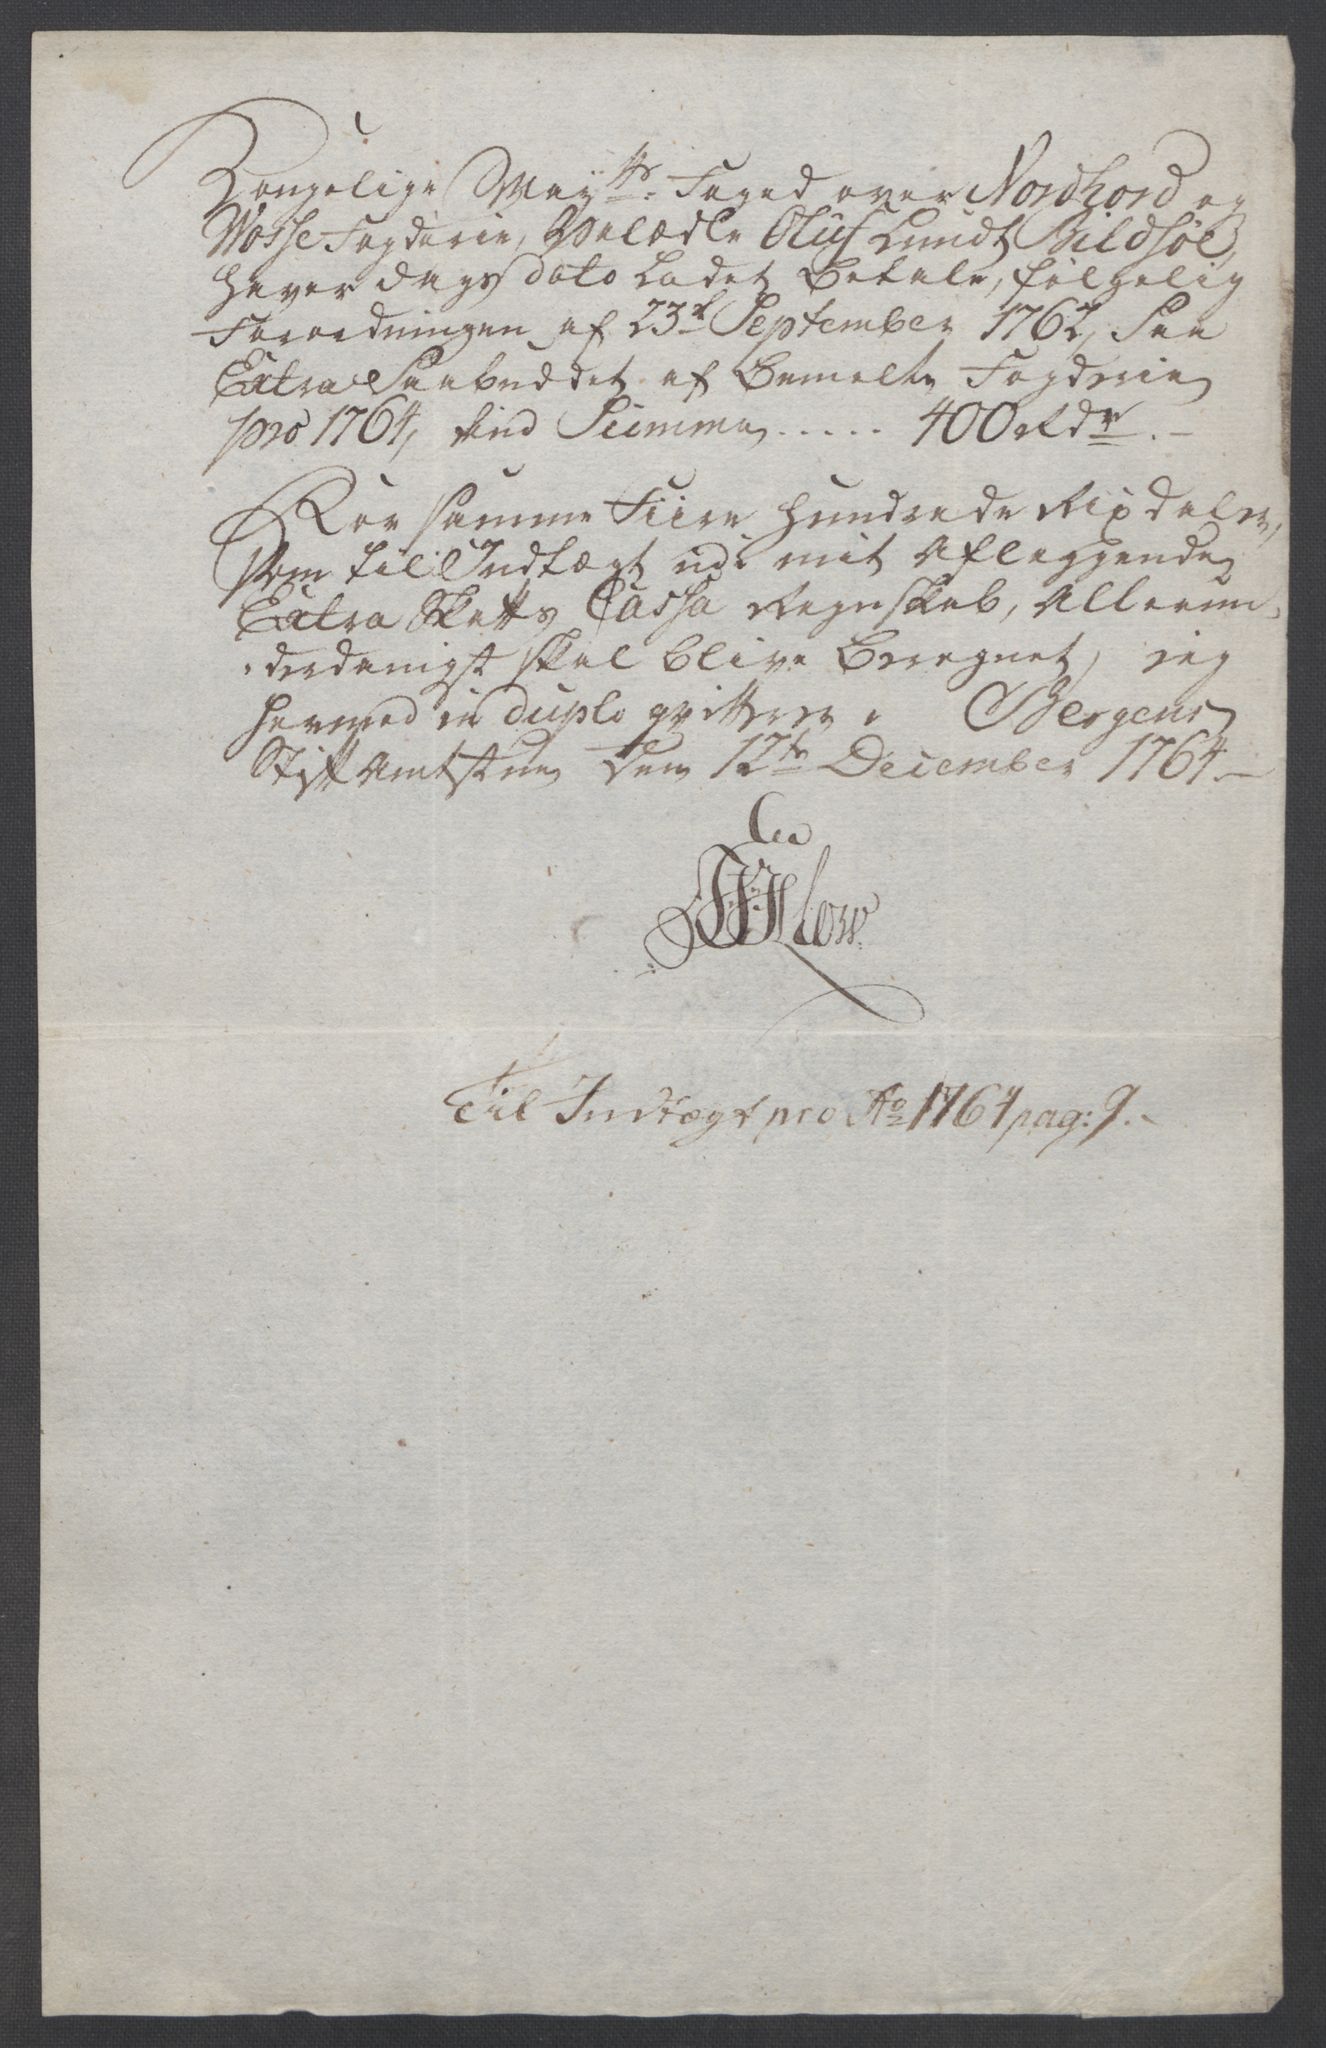 Kongelige May:tts Foged over Nordhord og
Wosse Fogderie, Velædle Oluf Lundt Bildsøe,
haver dags dato ladet betale, følgelig
Forordningen af 23de September 1762, paa
Extra Paabuddet af bemelte Fogderie
pro 1764, een Summa ..... 400 Rdr. -
For samme Fiire Hundrede Rixdaler,
som til Indtægt udi mit aflæggende
Extra Skatts Cassa Regnskab, allerun-
derdanigst skal blive beregnet, jeg
herved in duplo qvitterer. Bergens
Stiftamtstue den 12te December 1764. -
Til Indtægt pro Ao 1764 pag: 9. -